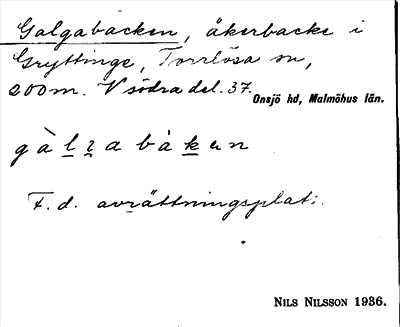 Galgabacken, åkerbacke i
Gryttinge, Torrlösa sn,
200 m. V södra del. 37.
Onsjö hd, Malmöhus län.
gàlgabákan
F. d. avrättningsplats.
NILS NILSSON 1936.